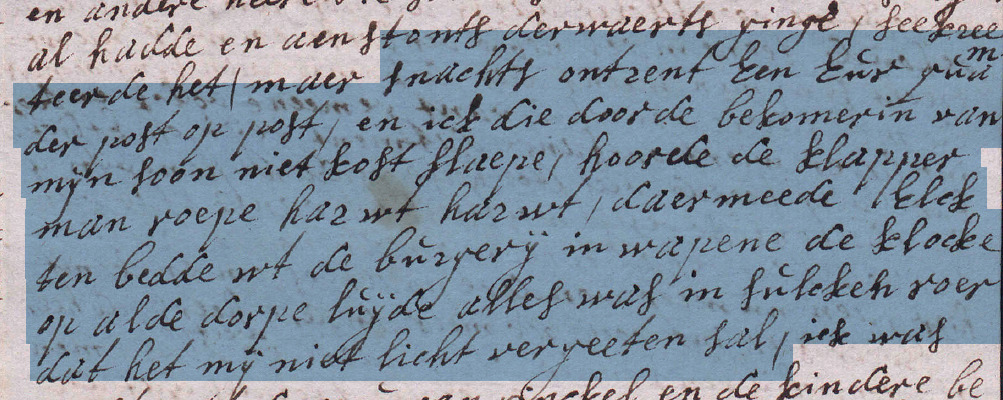 en andere
al hadde en aenstonts derwaerts ginge, see
teerde het, maer snachts ontrent een eur qua
m
der post op post, en ick die door de bekomerin van
myn soon niet kost slaepe, hoorde de klapper
man roepe harwt harwt, daermeede elck
ten bedde wt de burgerÿ in wapene de klocke
op alde dorpe luÿde alles was in sulcken roer
dat het mÿ niet licht vergeeten sal, ick was
en de kindere be